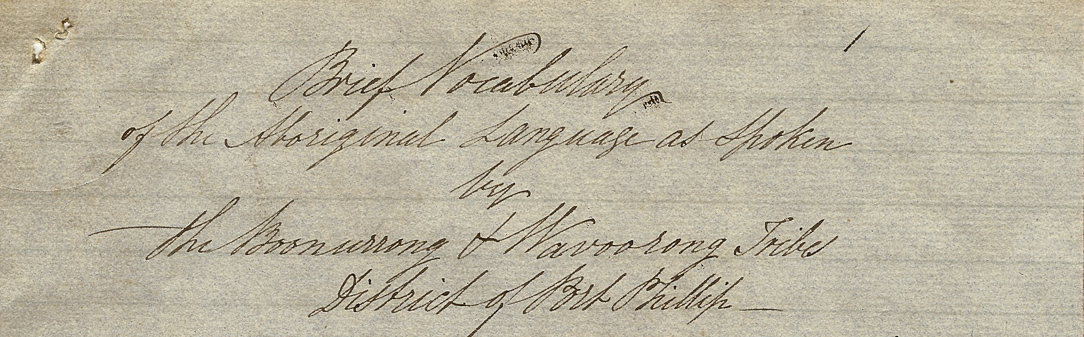 1
Brief Vocabulary
of the Aboriginal Language as Spoken
by
the Boonurrong & Wavoorong Tribes
District of Port Phillip —